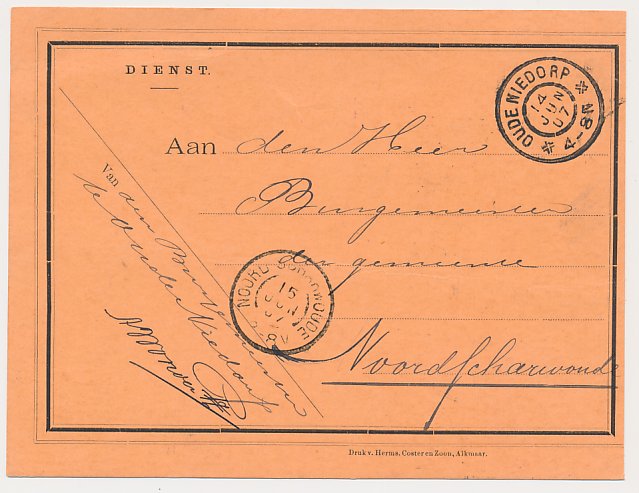 DIENST.
OUDE NIEDORP
14 JUN 07
4-8N
Aan den Heer
Burgemeester
der gemeente
Noordscharwoude
NOORD-SCHARWOUDE
15 JUN 07
Van den Burgemeester
te Oude Niedorp
Druk v. Herms. Coster en Zoon, Alkmaar.